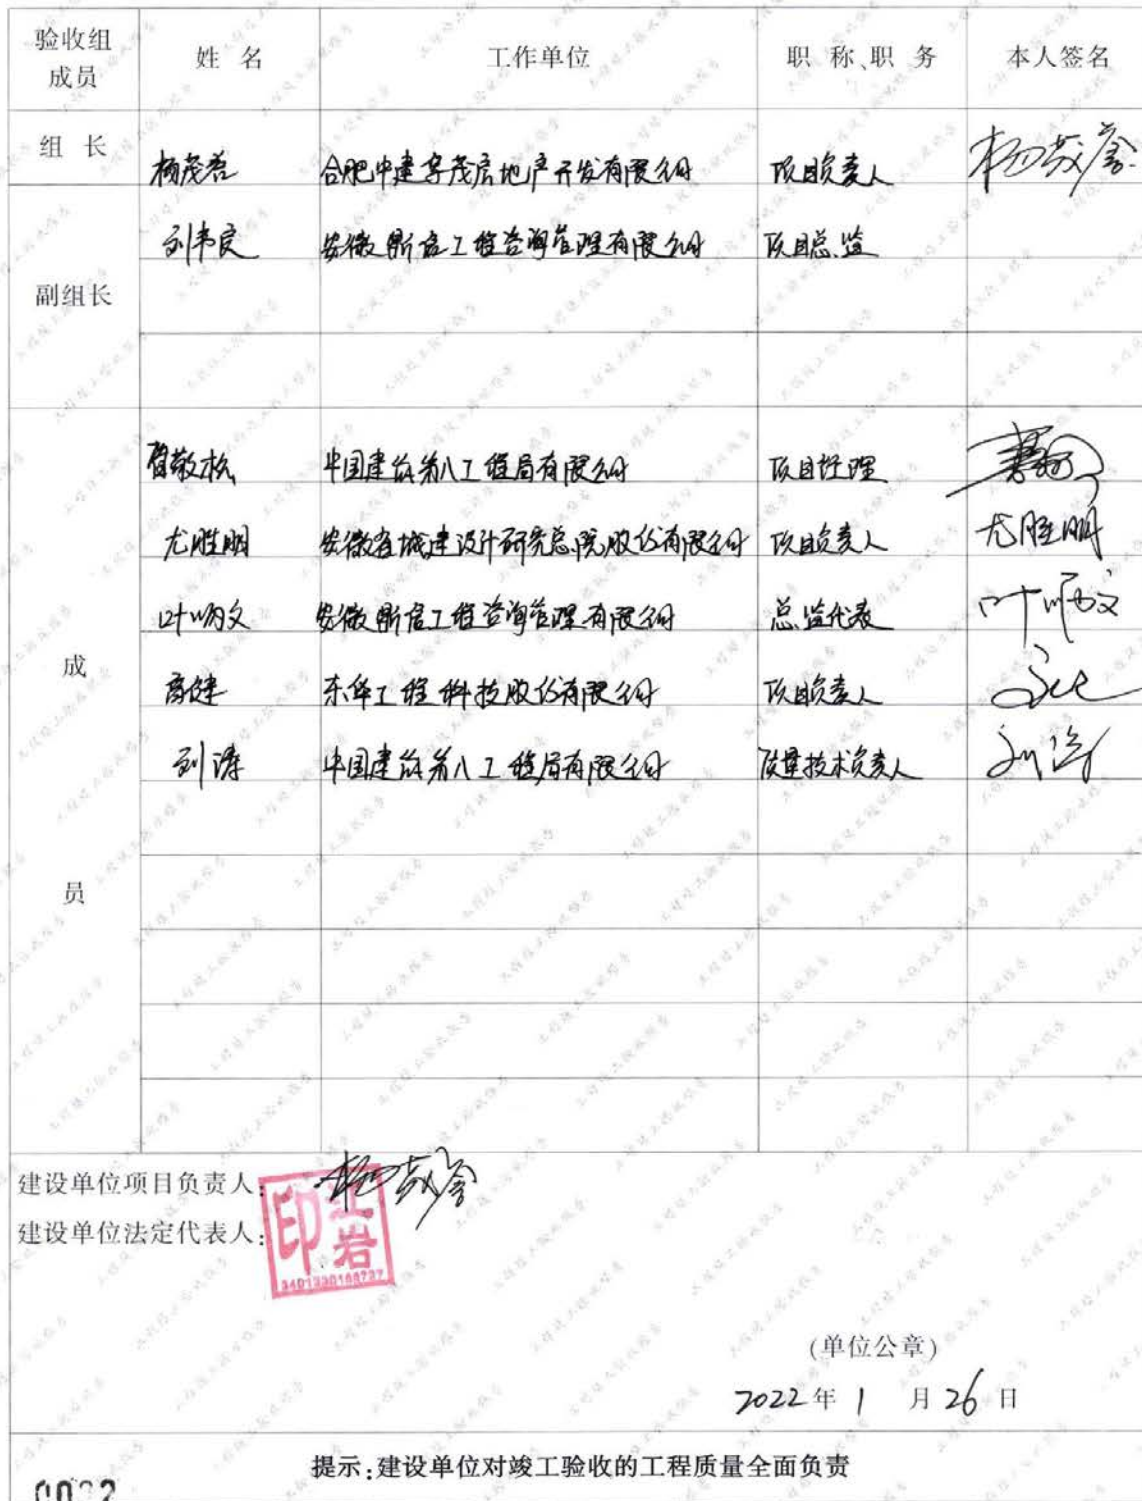 验收组成员 姓 名 工作单位 职 称、职 务 本人签名
组 长 杨茂岩 合肥中建孚茂房地产开发有限公司 项目负责人
副组长 刘韦良 安徽斯信工程咨询管理有限公司 项目总监
成员
敬松 中国建筑第八工程局有限公司 项目经理
尤胜明 安徽省城建设计研究总院股份有限公司 项目负责人 尤胜明
叶炳文 安徽斯信工程咨询管理有限公司 总监代表 叶炳文
高健 东华工程科技股份有限公司 项目负责人
刘涛 中国建筑第八工程局有限公司 技术负责人 刘涛
建设单位项目负责人:
建设单位法定代表人:
印 岩
(单位公章)
2022年 1 月 26 日
提示:建设单位对竣工验收的工程质量全面负责